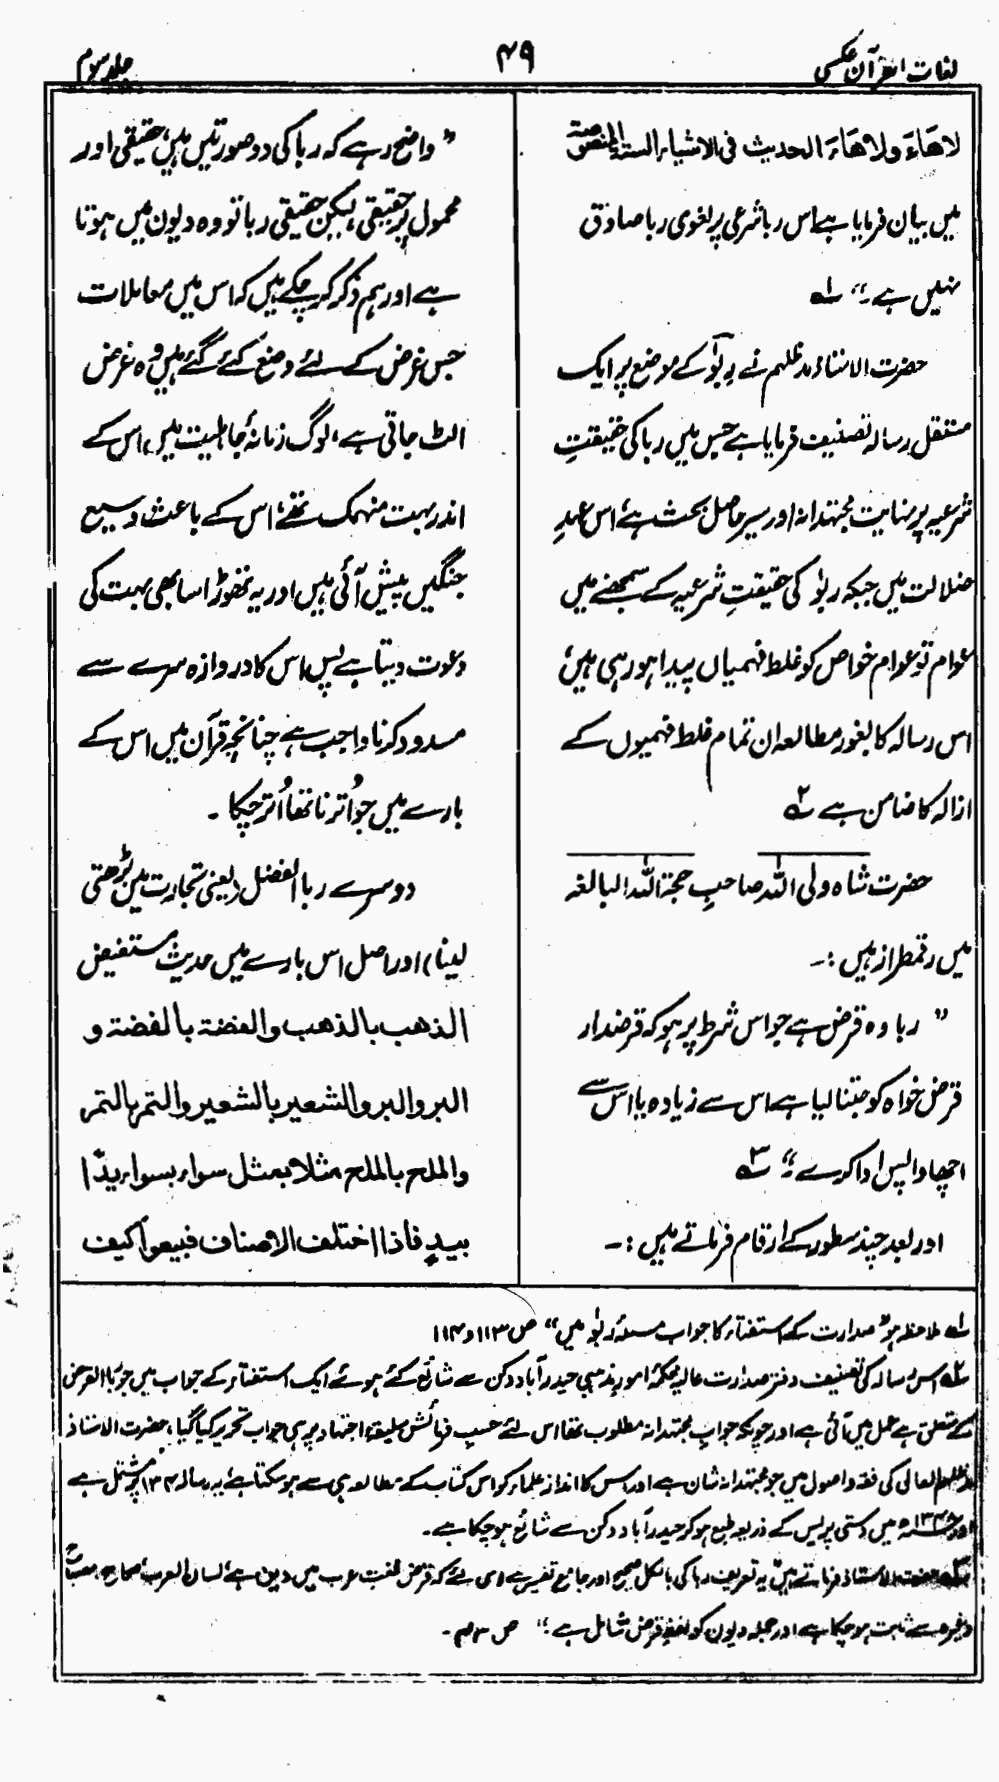 لغات القرآن عکسی
۴۹
جلد سوم
لاھَاءَ ولاھَاءَ الحدیث فی الاشیاء الستۃ المنصصۃ
میں بیان فرمایا ہے اس ربا شرعی پر لغوی ربا صادق
نہیں ہے؛“ ۱ے
حضرت الاستاذ مدظلہم نے رِبٰوا کے موضع پر ایک
مستقل رسالہ تصنیف فرمایا ہے جس میں ربا کی حقیقتِ
شرعیہ پر نہایت مجتہدانہ اور سیر حاصل بحث ہے، اس عہدِ
ضلالت میں جبکہ ربٰوا کی حقیقتِ شرعیہ کے سمجھنے میں
عوام تو عوام خواص کو غلط فہمیاں پیدا ہو رہی ہیں،
اس رسالہ کا بغور مطالعہ ان تمام غلط فہمیوں کے
ازالہ کا ضامن ہے ۲ے
حضرت شاہ ولی اللہ صاحبِ حجۃ اللہ البالغہ
میں رقمطراز ہیں :۔
” ربا وہ قرض ہے جو اس شرط پر ہو کہ قرضدار
قرض خواہ کو جتنا لیا ہے اس سے زیادہ یا اس سے
اچھا واپس ادا کرے؛“ ۳ے
اور بعد چند سطور کے ارقام فرماتے ہیں :۔
” واضح رہے کہ ربا کی دو صورتیں ہیں، حقیقی اور
محمول بر حقیقی، لیکن حقیقی ربا تو وہ دیون میں ہوتا
ہے اور ہم ذکر کر چکے ہیں کہ اس میں معاملات
جس غرض کے لئے وضع کئے گئے ہیں وہ غرض
الٹ جاتی ہے، لوگ زمانۂ جاہلیت میں، اس کے
اندر بہت منہمک تھے، اس کے باعث وسیع
جنگیں پیش آئی ہیں اور یہ تھوڑا سا بھی بہت کی
دعوت دیتا ہے پس اس کا دروازہ سرے سے
مسدود کرنا واجب ہے چنانچہ قرآن میں اس کے
بارے میں جو اُترنا تھا اُتر چکا ۔
دوسرے ربا الفضل (یعنی تجارت میں بڑھتی
لینا) اور اصل اس بارے میں حدیث مستفیض
الذھب بالذھب والفضۃ بالفضۃ و
البر والبر والشعیر بالشعیر والتمر بالتمر
والملح بالملح مثلا بمثل سواء بسواء یدًا
بیدٍ فاذا اختلف الاصناف فبیعوا کیف
۱ے ملاحظہ ہو ” صدارت کے استفتاء کا جواب مسئلہ ربٰوا میں “ ص ۱۱۳ و ۱۱۴
۲ے اس رسالہ کی تصنیف دفتر صدارت عالیہ محکمۂ امور مذہبی حیدرآباد دکن سے شائع کئے ہوئے ایک استفتاء کے جواب میں جو ربا القرض
کے متعلق ہے عمل میں آئی ہے اور چونکہ جواب مجتہدانہ مطلوب تھا اس لئے حسبِ فرمائش سلیقۂ اجتہاد پر ہی جواب تحریر کیا گیا، حضرت الاستاذ
مدظلہم العالی کی فقہ و اصول میں جو مجتہدانہ شان ہے اور اس کا اندازہ علماء کو اس کتاب کے مطالعہ ہی سے ہو سکتا ہے، یہ رسالہ پر مشتمل ہے
اور میں دستی پریس کے ذریعہ طبع ہو کر حیدرآباد دکن سے شائع ہو چکا ہے ۔
۳ے حضرت الاستاذ فرماتے ہیں ” یہ تعریف ربا کی بالکل صحیح اور جامع تفسیر ہے اسی لئے کہ قرض لغت عرب میں دین ہے، لسان العرب، صحاح، مصباح
وغیرہ سے ثابت ہو چکا ہے اور جملہ دیون کو لفظِ قرض شامل ہے ؛“ ص